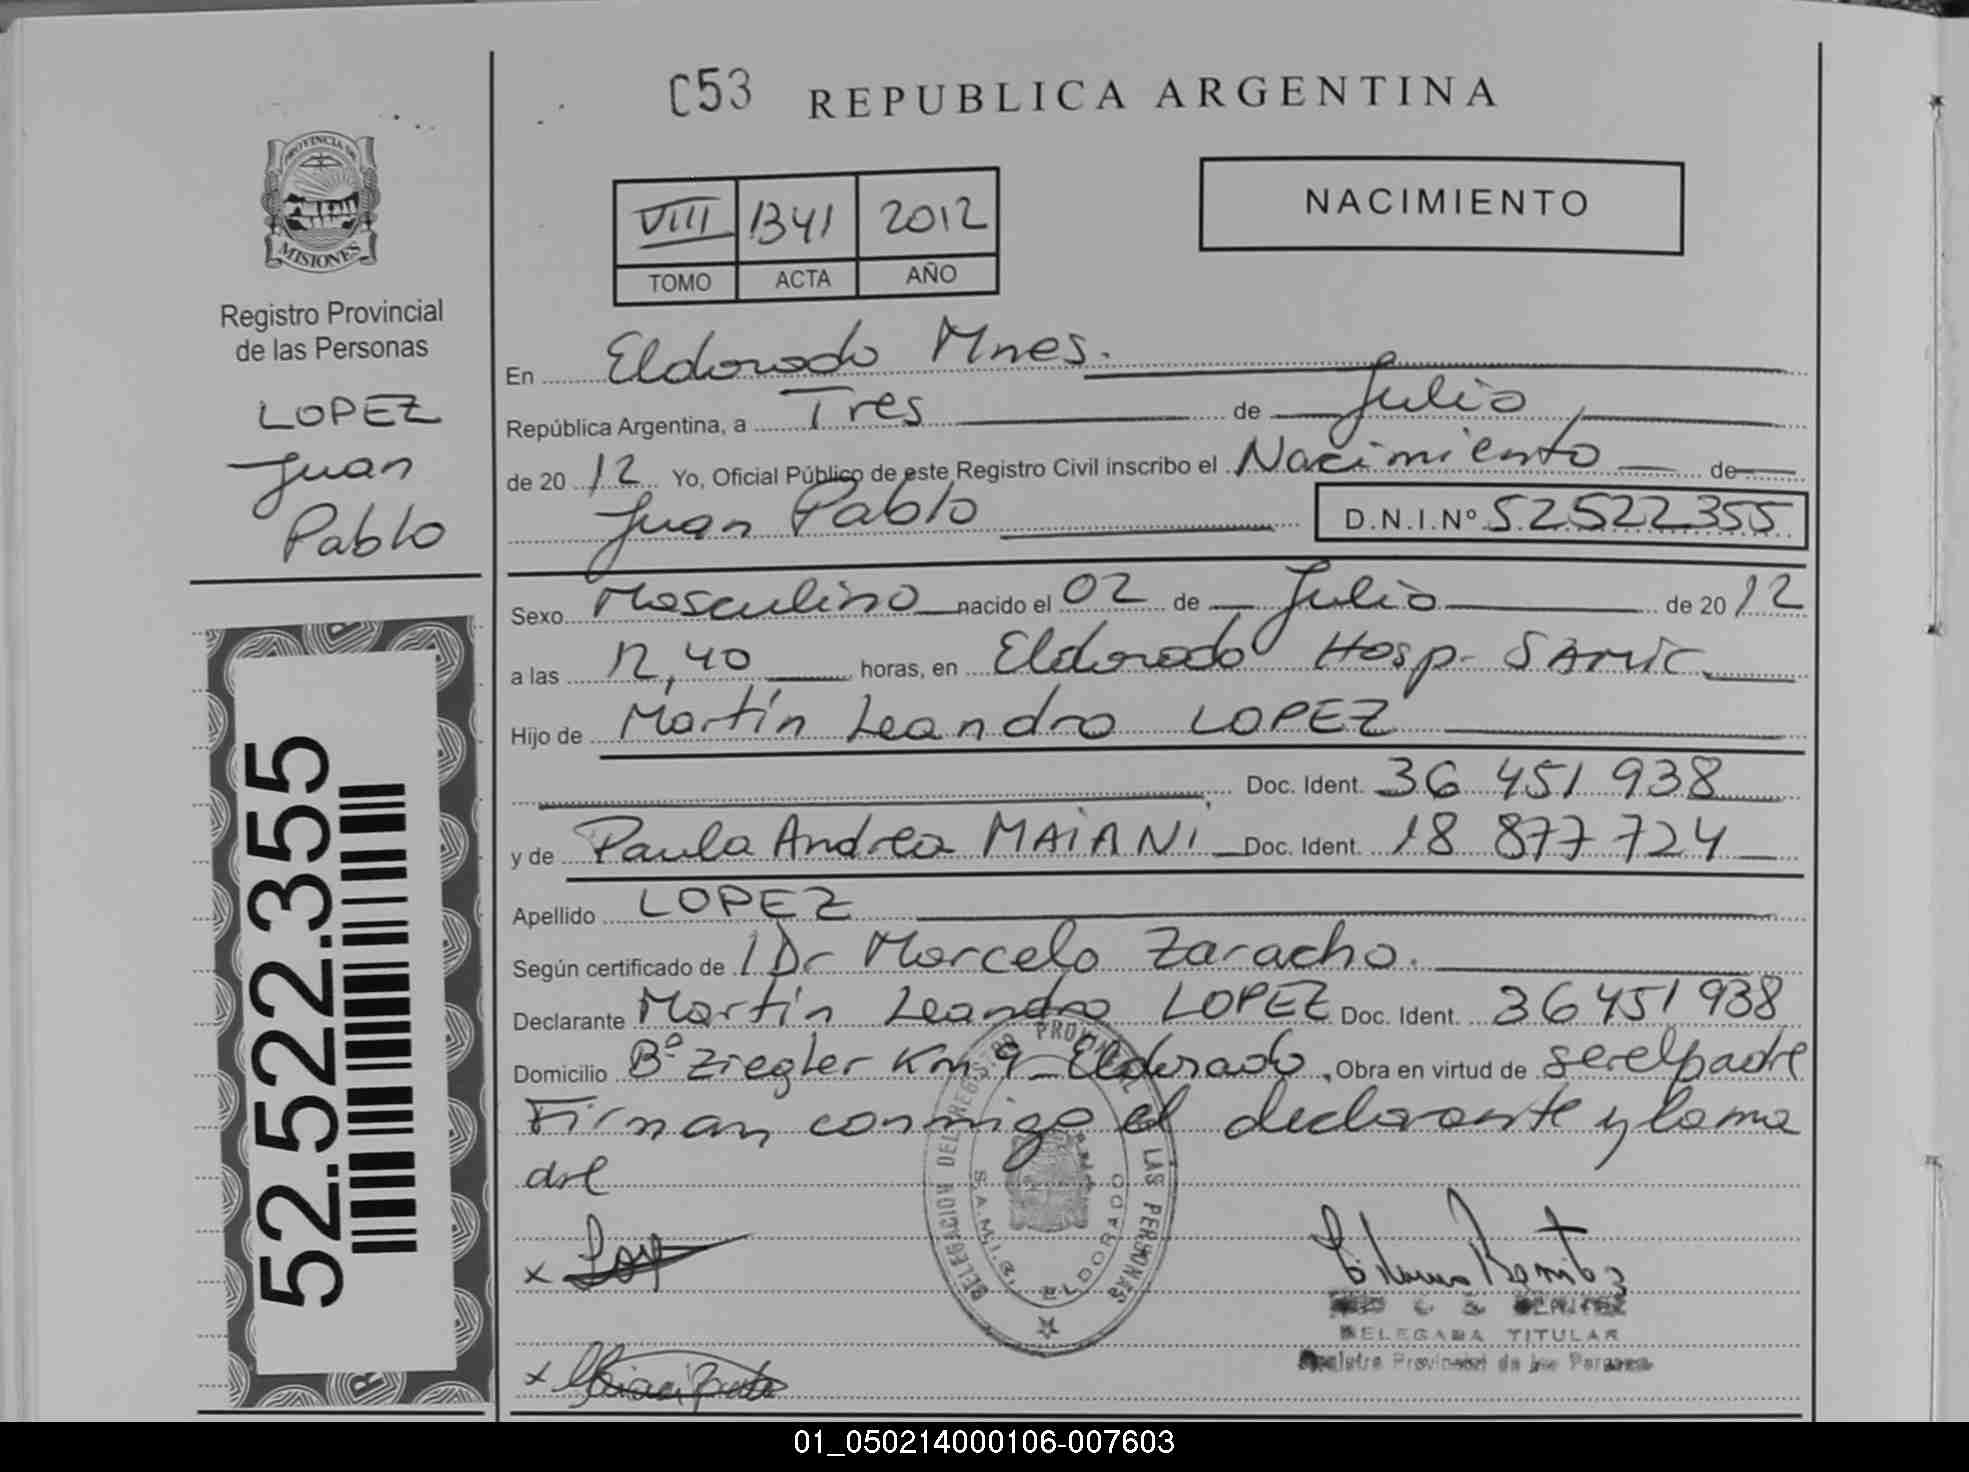 C53 REPUBLICA ARGENTINA
NACIMIENTO
VIII 1341 2012
TOMO ACTA AÑO
PROVINCIA DE
MISIONES
Registro Provincial
de las Personas
LOPEZ
Juan
Pablo
52.522.355
En Eldorado Mnes.
República Argentina, a Tres de Julio
de 20 12 Yo, Oficial Público de este Registro Civil inscribo el Nacimiento de
Juan Pablo D.N.I.Nº 52522355
Sexo Masculino nacido el 02 de Julio de 20 12
a las 12,40 horas, en Eldorado Hosp. SAMIC
Hijo de Martín Leandro LOPEZ
Doc. Ident. 36 451 938
y de Paula Andrea MAIANI Doc. Ident. 18 877 724
Apellido LOPEZ
Según certificado de Dr Marcelo Zaracho.
Declarante Martín Leandro LOPEZ Doc. Ident. 36451938
Domicilio Bº Ziegler Km 9 - Eldorado, Obra en virtud de ser el padre
Firman conmigo el declarante y la ma
dre
DELEGACION DEL REGISTRO PROVINCIAL DE LAS PERSONAS
S.A.M.I.C. ELDORADO
x
x
BENITEZ
DELEGADA TITULAR
Registro Provincial de las Personas
01_050214000106-007603